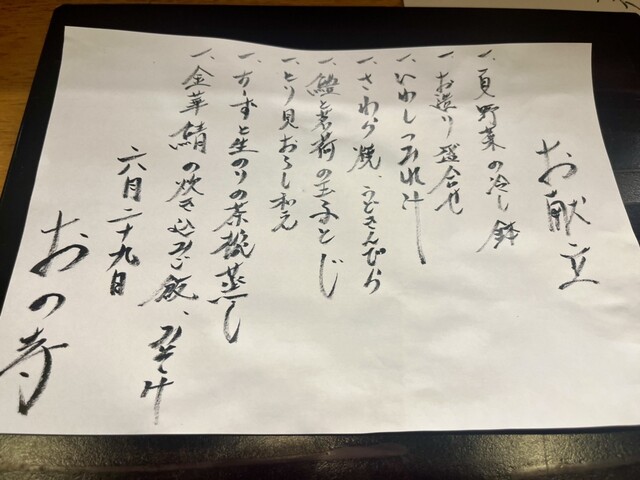 お献立
一、夏野菜の冷し鉢
一、お造り盛合せ
一、いわしつみれ汁
一、さわら焼、うどきんぴら
一、鱧と茗荷の玉子とじ
一、とり貝おろし和え
一、チーズと生のりの茶椀蒸し
一、金華鯖の炊き込みご飯、みそ汁
六月二十九日
おの寺